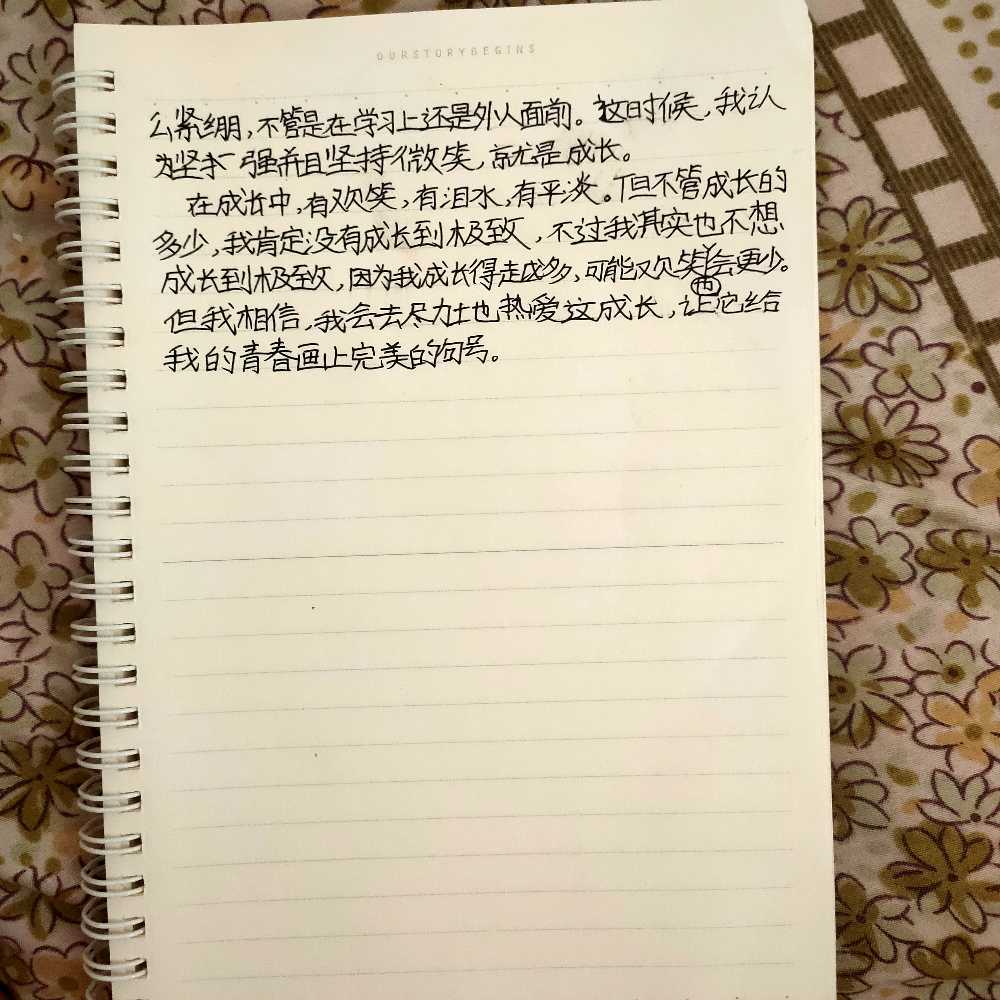 OURSTORYBEGINS
么紧绷，不管是在学习上还是外人面前。这时候，我认
为坚强并且坚持微笑，就是成长。
在成长中，有欢笑，有泪水，有平淡。但不管成长的
多少，我肯定没有成长到极致，不过我其实也不想
成长到极致，因为我成长得走成多，可能欢笑会更少。
但我相信，我会去尽力去热爱这成长，让它给
我的青春画上完美的句号。